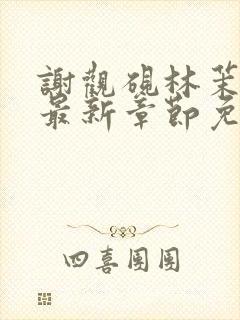 謝觀硯林茉
最新章節免
四喜團團